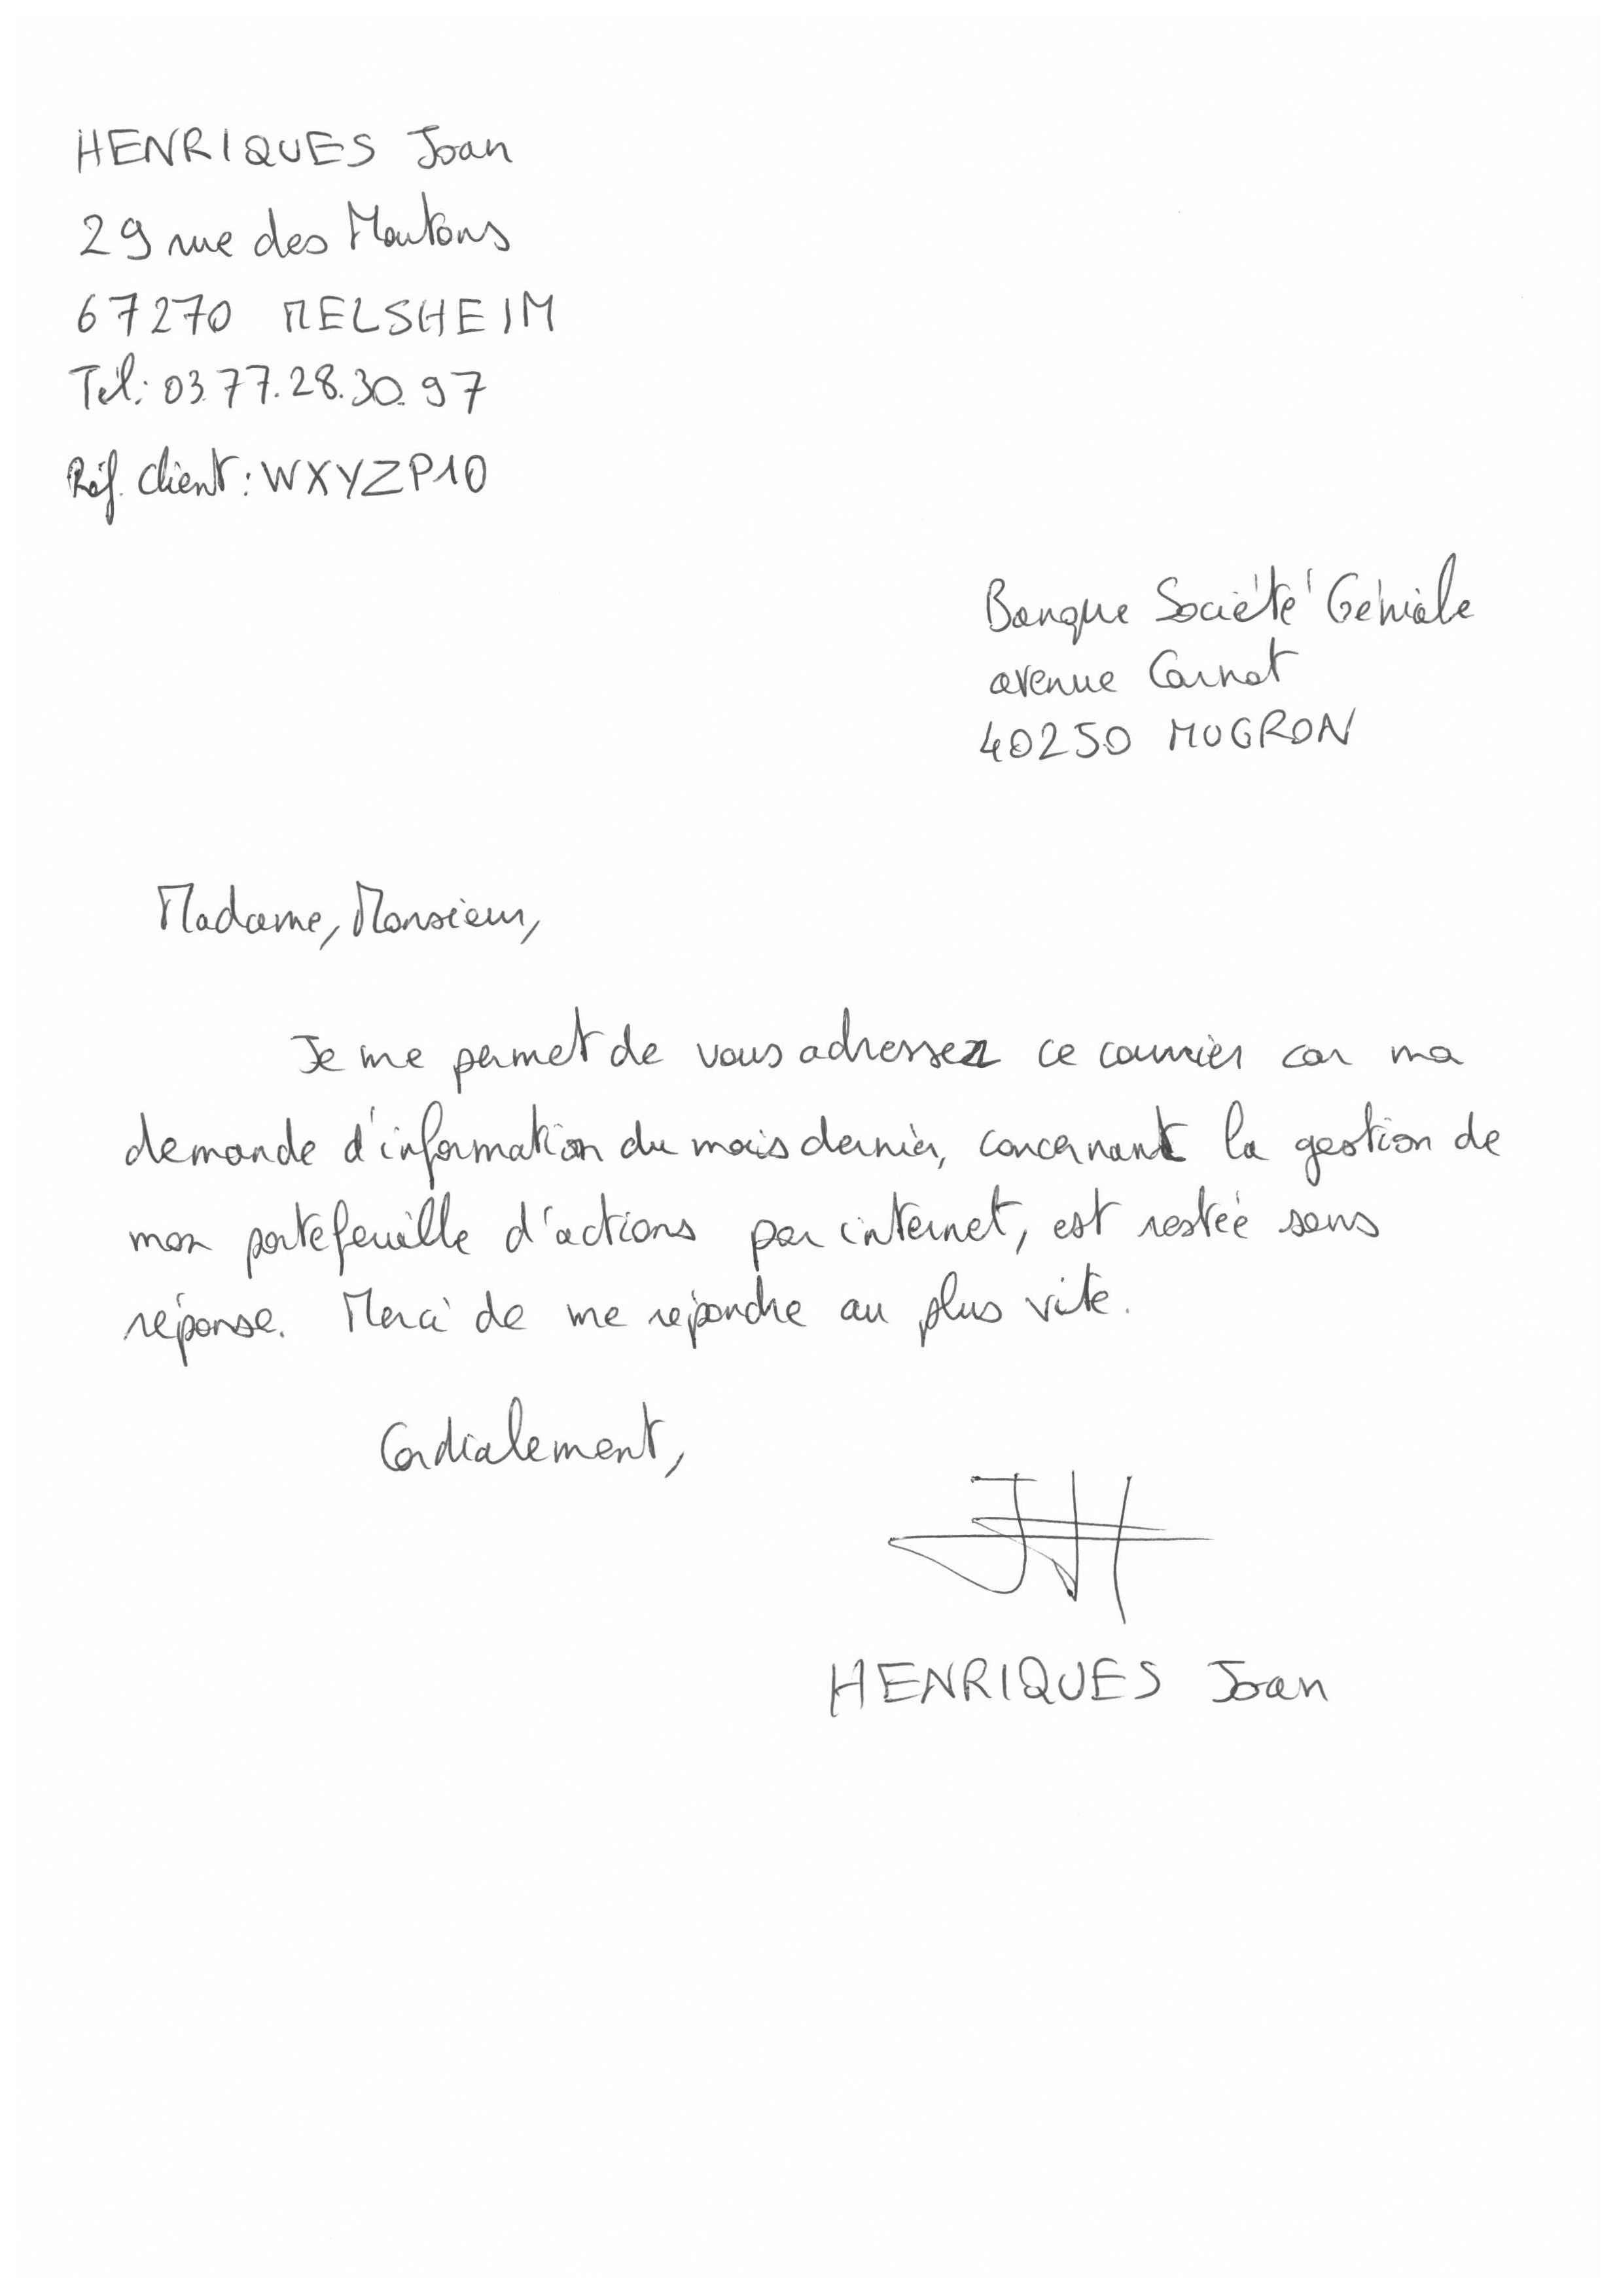 HENRIQUES Joan
29 rue des Moutons
67270 MELSHEIM
Tél: 03.77.28.30.97
Réf. client : WXYZP10
Banque Société Géniale
avenue Carnot
40250 MUGRON
Madame, Monsieur,
Je me permet de vous adresser ce courrier car ma
demande d'information du mois dernier, concernant la gestion de
mon portefeuille d'actions par internet, est restée sans
réponse. Merci de me répondre au plus vite.
Cordialement,
JH
HENRIQUES Joan